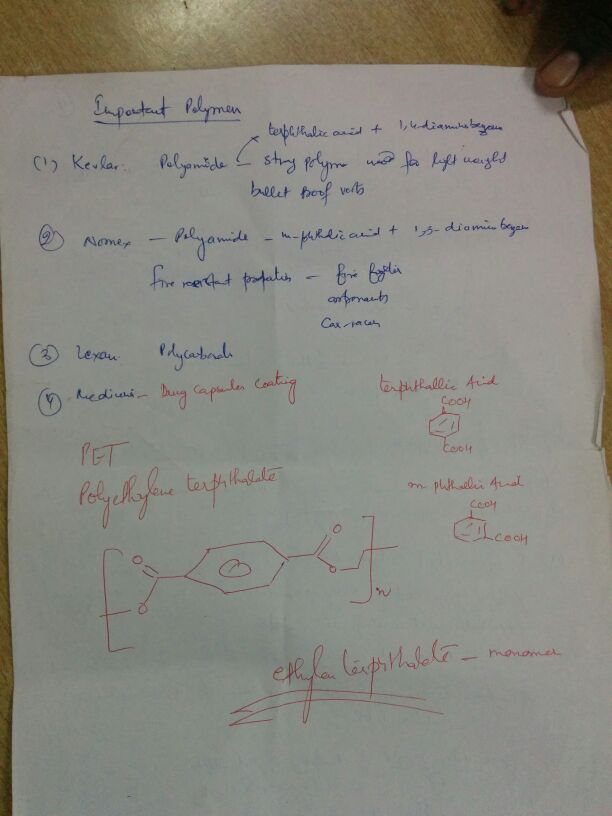 Important Polymers
terphthalic acid + 1,4-diaminobezene
(1) Kevlar: Polyamide – strong polymer used for light weight
bullet proof vests
(2) Nomex – Polyamide – m-phthalic acid + 1,3-diamino
fire resistant properties – fire fighter
astronauts
Car-races
(3) Lexan: Polycarbonate
(4) Medicine – Drug Capsules Coating
terphthallic Acid
COOH
COOH
PET
Polyethylene terphthalate
m phthallic Acid
COOH
COOH
O
O
O
O
n
ethylene terphthalate – monomer